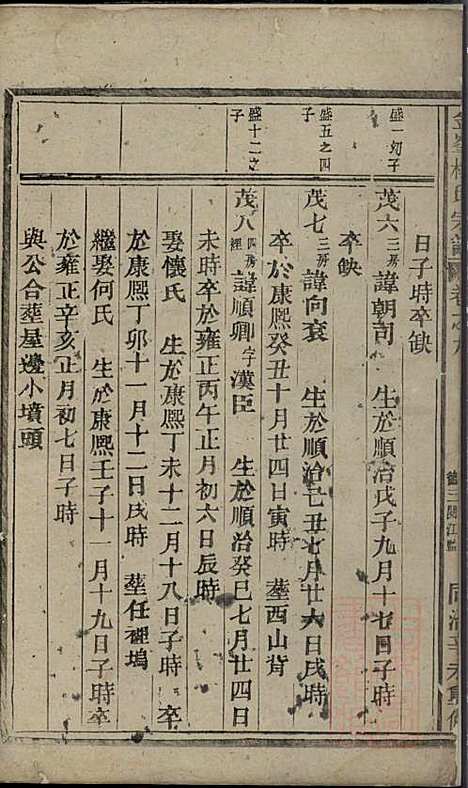 日子時卒缺
盛一幼子
茂六 三房 諱朝前 生於順治戊子九月十七日子時
卒缺
盛五之四子
茂七 三房 諱向袞 生於順治己丑七月廿六日戌時
卒於康熙癸丑十月廿四日寅時 塟西山背
盛十二之子
茂八 四房 經 諱順卿 字漢臣 生於順治癸巳七月廿四日
未時卒於雍正丙午正月初六日辰時
娶懷氏 生於康熙丁未十二月十八日子時 卒
於康熙丁卯十一月十二日戌時 塟任裡塢
繼娶何氏 生於康熙壬子十一月十九日子時卒
於雍正辛亥正月初七日子時
與公合塟屋邊小墳頭